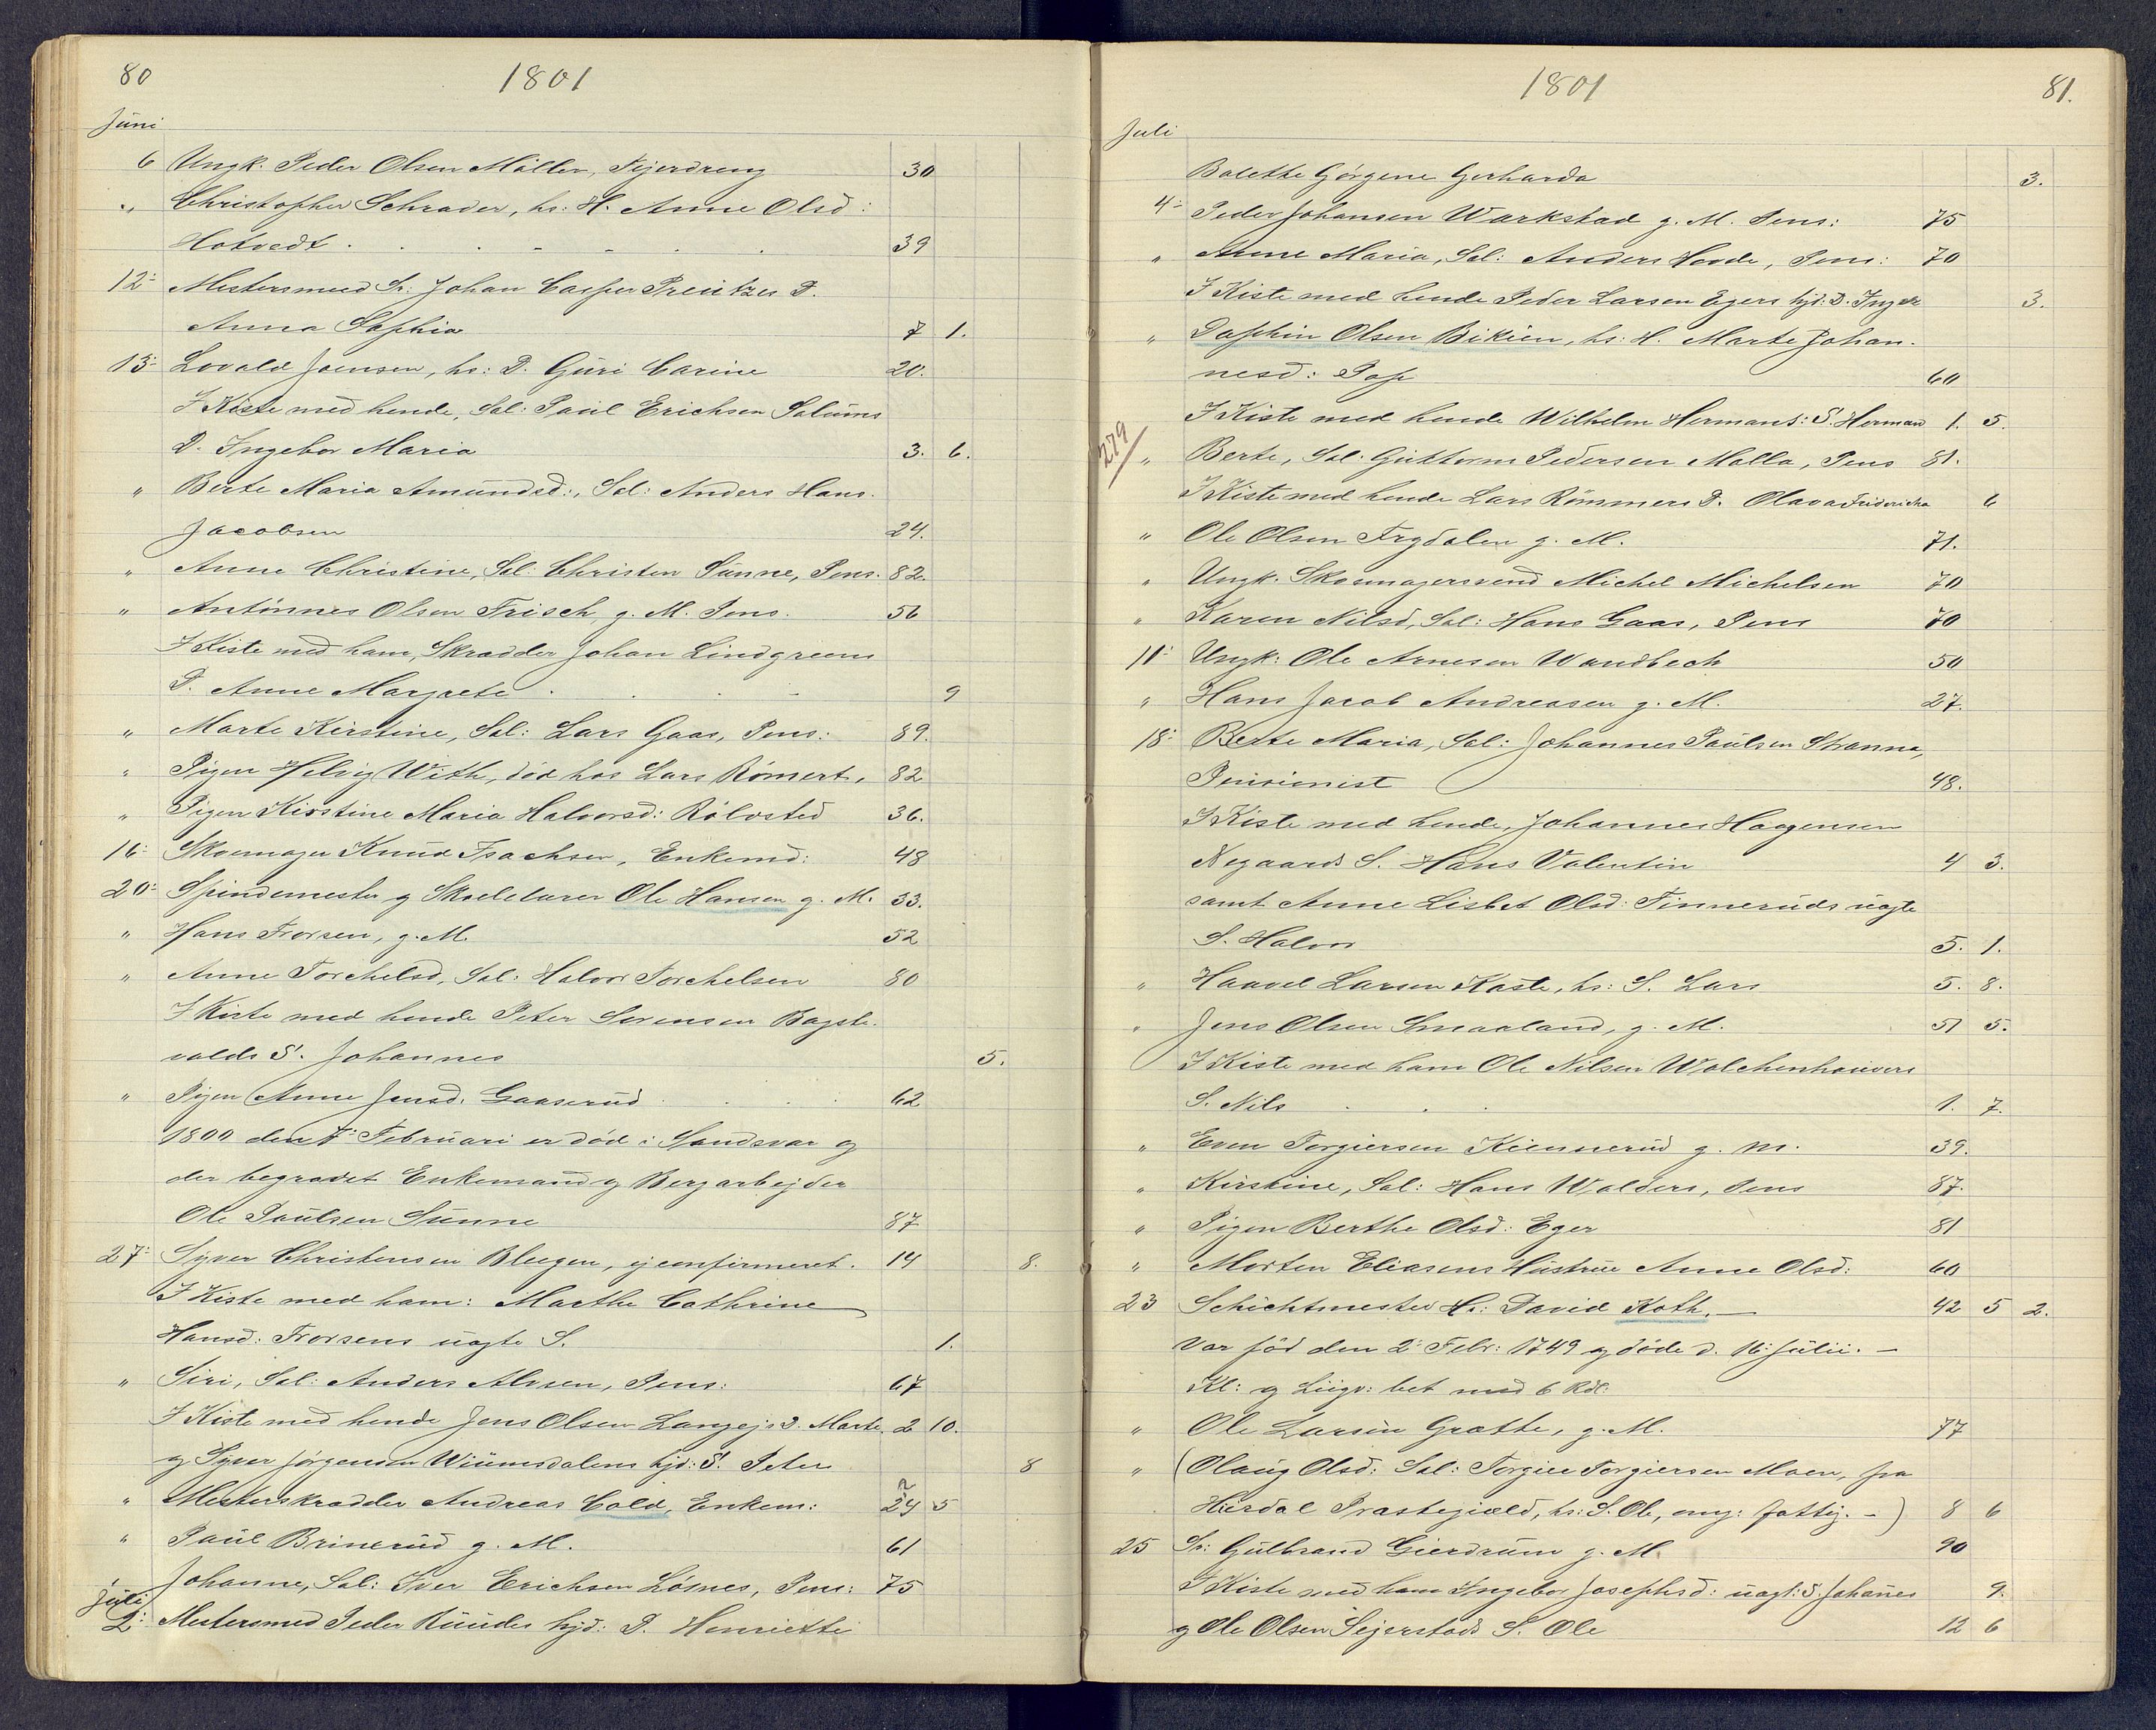 80 1801
Juni
6 Ungk. Peder Olsen Møller, Fejerdreng 30
" Christopher Schrader, hs: H. Anne Olsd:
Hotvedt . . . . . 39
12: Mestersmed Sr: Johan Casper Preutzes D.
Anna Sophia 7 1.
13: Lovald Joensen, hs: D. Guri Carine 20.
I Kiste med hende, Sal: Paul Erichsen Salums
D. Ingebor Maria 3. 6.
" Berte Maria Amundsd:, Sal: Anders Hans
Jacobsen 24.
" Anne Christine, Sal: Christen Sunne, Pens. 82.
" Antonnes Olsen Frisch, g. M. Pens. 56
I Kiste med ham, Skrædder Johan Lindgreens
D. Anne Margrete . . . 9
" Marte Kirstine, Sal: Lars Gaas, Pens: 89.
" Pigen Helvig With, død hos Lars Römert. 82
" Pigen Kirstine Maria Halvorsd: Rölvsted 36.
16: Skoemager Knud Isachsen, Enkemd: 48
20: Spindemester og Skoelelærer Ole Hansen g. M. 33.
" Hans Frorsen, g. M. 52
" Anne Torchelsd, Sal: Halvor Torchelsen 80
I Kiste med hende Peter Sørensen Bagste-
valds S. Johannes 5.
" Pigen Anne Jensd. Gaaserud . . . 62
1800 den 7: Februari er død i Sandsvær og
der begravet Enkemand og Bergarbejder
Ole Paulsen Sunne 87
27: Syver Christensen Bleegen, ej confirmeret. 14 8.
I Kiste med ham: Marthe Cathrine
Hansd: Frorsens uægte S. 1.
" Siri, Sal: Anders Alvsen, Pens: 67
I Kiste med hende Jens Olsen Langejs D. Marte 2 10.
og Syver Jørgensen Wiumsdalens hjd: S. Peter 8
" Mesterskrædder Andreas Cold, Enkem: 24 5
" Paul Brinerud g. M. 61
Johanne, Sal: Iver Erichsen Lösnes, Pens: 75
Juli
2: Mestersmed Peder Ruudes hjd: D. Henriette
1801 81.
Juli
Bolette Gørgene Gerharda 3.
4: Peder Johansen Warkstad g. M. Pens: 75
" Anne Maria, Sal: Anders Hovde, Pens: 70
I Kiste med hende Peder Larsen Egers hjd: D. Inger 3.
" Dophin Olsen Bikien, hs: H. Marte Johan-
nesd: Pop 60
I Kiste med hende Wilhelm Hermans: S. Herman 1. 5.
279
" Berte, Sal: Guttorm Pedersen Molla, Pens 81.
I Kiste med hende Lars Römmers D. Olava Fridericha 6
" Ole Olsen Frydalen g. M. 71.
" Ungk. Skoemagersvend Michel Michelsen 70
" Karen Nilsd, Sal: Hans Gaas, Pens 70
11: Ungk: Ole Arnesen Wandbech 50
" Hans Jacob Andreasen g. M. 27.
18: Berte Maria, Sal: Johannes Paulsen Stranna,
Pensionist 48.
I Kiste med hende, Johannes Haagensen
Nygaards S. Hans Valentin 4 3.
samt Anne Lisbet Olsd: Finneruds uægte
S. Halvor 5. 1.
" Haavel Larsen Kaste, hs: S. Lars 5. 8.
" Jens Olsen Smaaland, g. M. 51 5.
I Kiste med ham Ole Nilsen Wolchenhouers
S. Nils . . . 1. 7.
" Even Torgiersen Kiennerud g. M. 39.
" Kirstine, Sal: Hans Walders, Pens 87.
" Pigen Berthe Olsd: Eger 81
" Morten Eliasens Hustrue Anne Olsd: 60
23 Schichtmester Hr: David Koth. — 42 5 2.
Var fød den 2: Febr: 1749 og døde d. 16: Julii. —
Kl: og Liigv: bet med 6 Rdl:
" Ole Larsen Grotte, g. M. 77
" (Olaug Olsd: Sal: Torgier Torgiersen Moen, fra
Hierdal Præstegiæld, hs: S. Ole, omg: fattig. —) 8 6
25 Sr: Gulbrand Gierdrum g. M. 90
I Kiste med ham Ingebor Josephsd: uægt: S. Johanes 9.
og Ole Olsen Sejerstads S. Ole 12 6